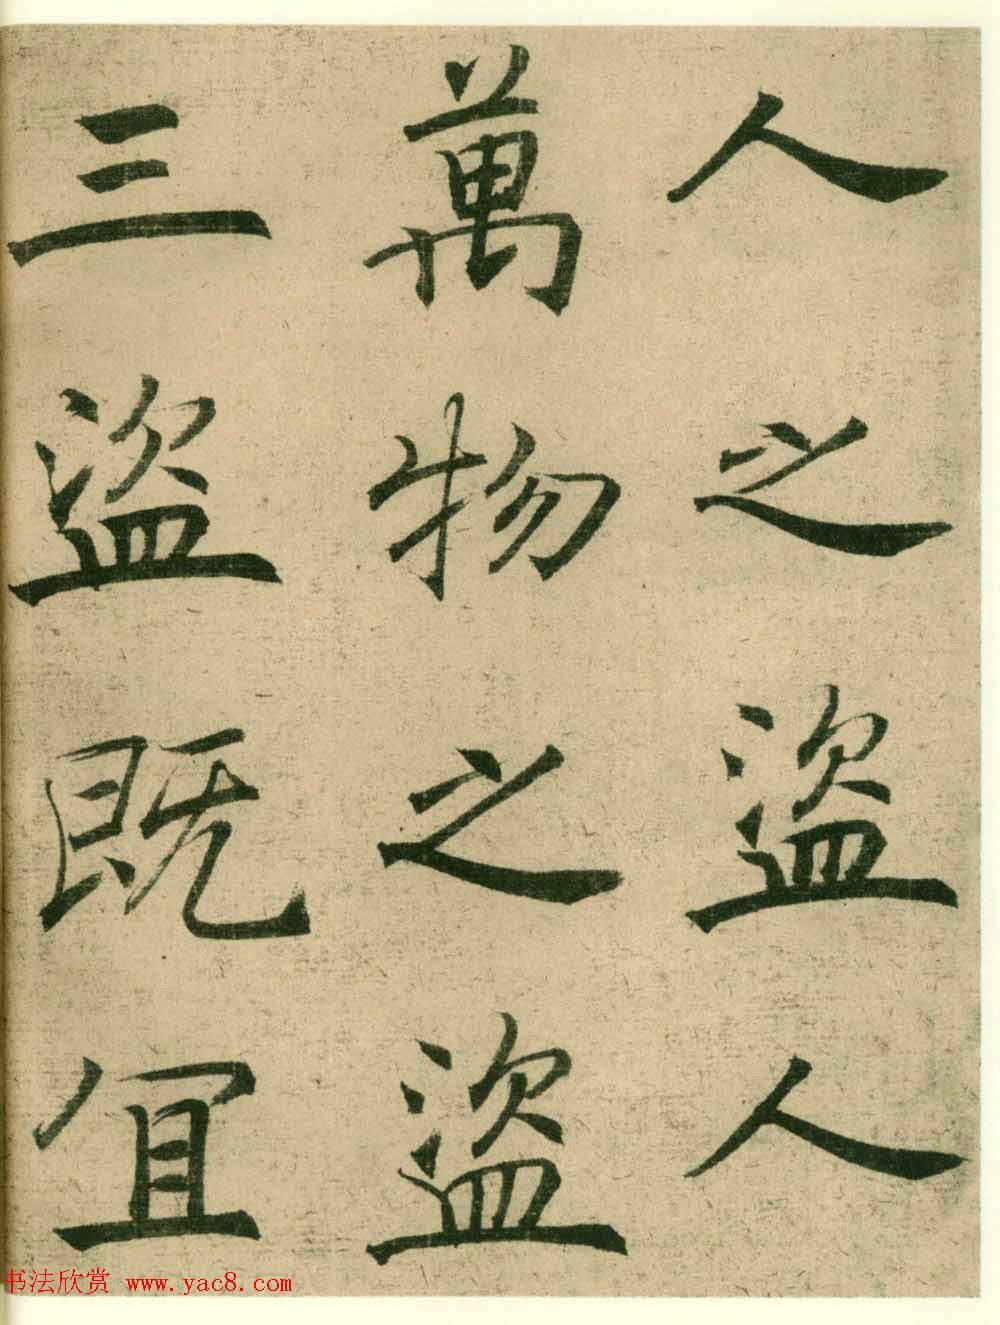 人之盜人
萬物之盜
三盜既宜
书法欣赏 www.yac8.com